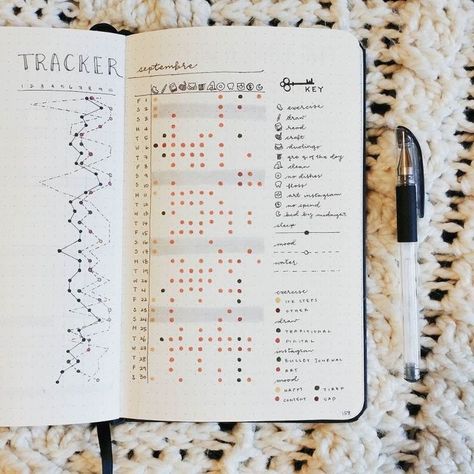 TRACKER
1 2 3 4 5 6 7 8 9 10
septembre
KEY
exercise
draw
read
craft
duolingo
gro g of the day
clean
no dishes
floss
art instagram
no spend
bed by midnight
sleep
mood
water
F 1
S 2
S 3
M 4
T 5
W 6
T 7
F 8
S 9
S 10
M 11
T 12
W 13
T 14
F 15
S 16
S 17
M 18
T 19
W 20
T 21
F 22
S 23
S 24
M 25
T 26
W 27
T 28
F 29
S 30
exercise
10K STEPS
OTHER
draw
TRADITIONAL
DIGITAL
instagram
BULLET JOURNAL
ART
mood
HAPPY TIRED
CONTENT SAD